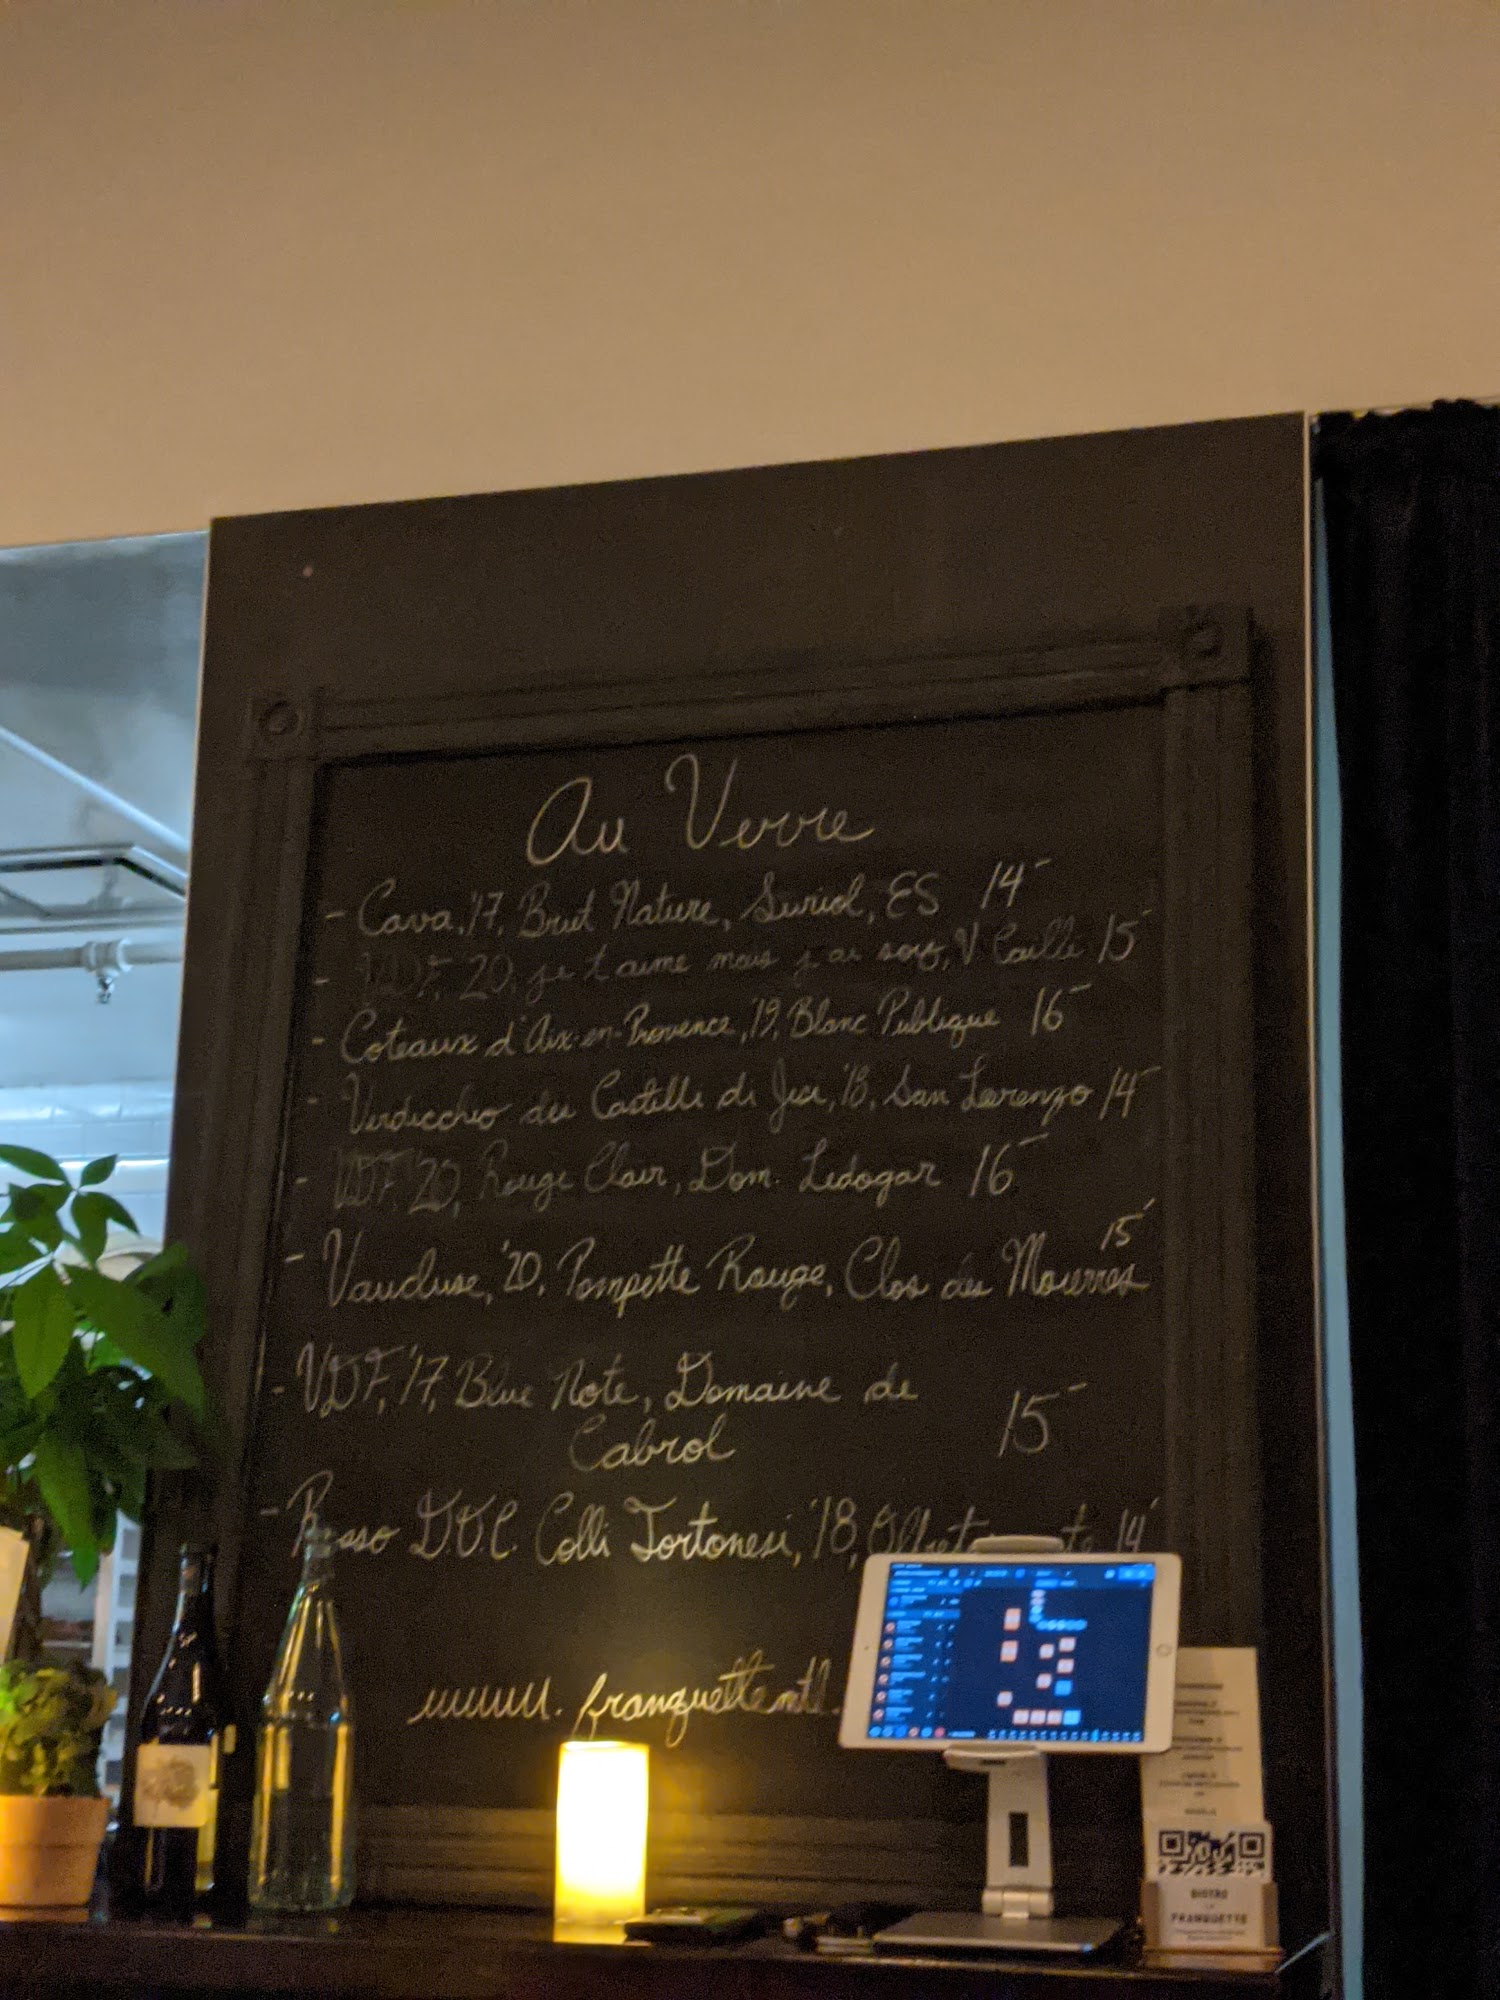 Au Verre
- Cava, '17, Brut Nature, Suriol, ES 14-
- VDF, '20, je t'aime mais j'ai soif, V. Caillé 15-
- Coteaux d'Aix-en-Provence, '19, Blanc Publique 16-
- Verdicchio dei Castelli di Jesi, '18, San Lorenzo 14-
- VDF, '20, Rouge Clair, Dom. Ledogar 16-
15-
- Vaucluse, '20, Pompette Rouge, Clos des Mourres
- VDF, '17, Blue Note, Domaine de
Cabrol 15-
- Rosso D.O.C. Colli Tortonesi, '18, 14-
www.franquettemtl.
BISTRO
LA
FRANQUETTE